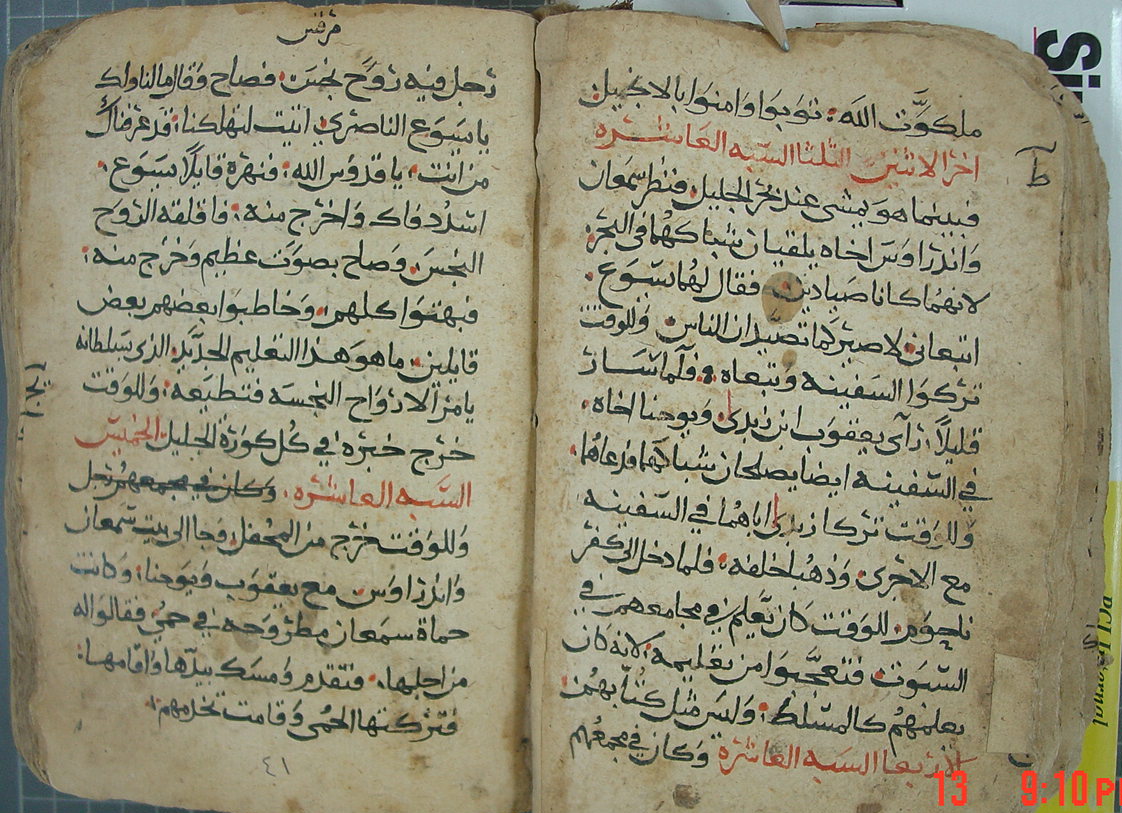 ملكوت الله: توبوا وامنوا بالانجيل
اخر الاثنين الثلثا السبه العاشره
فبينما هو يمشى عند بحر الجليل. فنظر سمعان
واندراوس اخاه يلقيان شباكهما فى البحر.
لانهما كانا صيادين. فقال لهما يسوع.
اتبعانى لاصيركما تصيدان الناس. وللوقت
تركوا السفينه وتبعاه. فلما سار
قليلاً: رآى يعقوب ابن زبدى. ويوحنا اخاه.
في السفينه ايضا يصلحان شباكهما فدعاهما.
وللوقت تركا زبدى اباهما في السفينه
مع الاجرى. وذهبا خلفه. فلما دخل الى كفر
ناحوم. للوقت كان يعلم في مجامعهم في
السبوت. فتعجبوا من تعليمه. لانه كان
يعلمهم كالمسلط: وليس مثل كتابهم:
الاربعا السبه العاشره وكان في مجمعهم
ط
مرقس
رجل فيه روح نجس. فصاح وقال مالنا ولك
يا يسوع الناصرى: اتيت لتهلكنا: قد عرفناك
من انت: يا قدوس الله: فنهره قايلاً يسوع.
اسدد فاك واخرج منه: فاقلقه الروح
النجس. وصاح بصوت عظيم وخرج منه:
فبهتوا كلهم. وخاطبوا بعضهم بعض
قايلين. ما هو هذا التعليم الجديد. الذى بسلطانه
يامر الارواح النجسه فتطيعه: وللوقت
خرج خبره في كل كورة الجليل. الخميس
السبه العاشره. وكان في مجمعهم رجل
وللوقت خرج من المحفل. وجا الى بيت سمعان
واندراوس. مع يعقوب ويوحنا: وكانت
حماة سمعان مطروحه في حمى فقالوا له
من اجلها. فتقدم ومسك بيدها واقامها.
فتركتها الحمى وقامت تخدمهم.
٤١
13 9:10 P